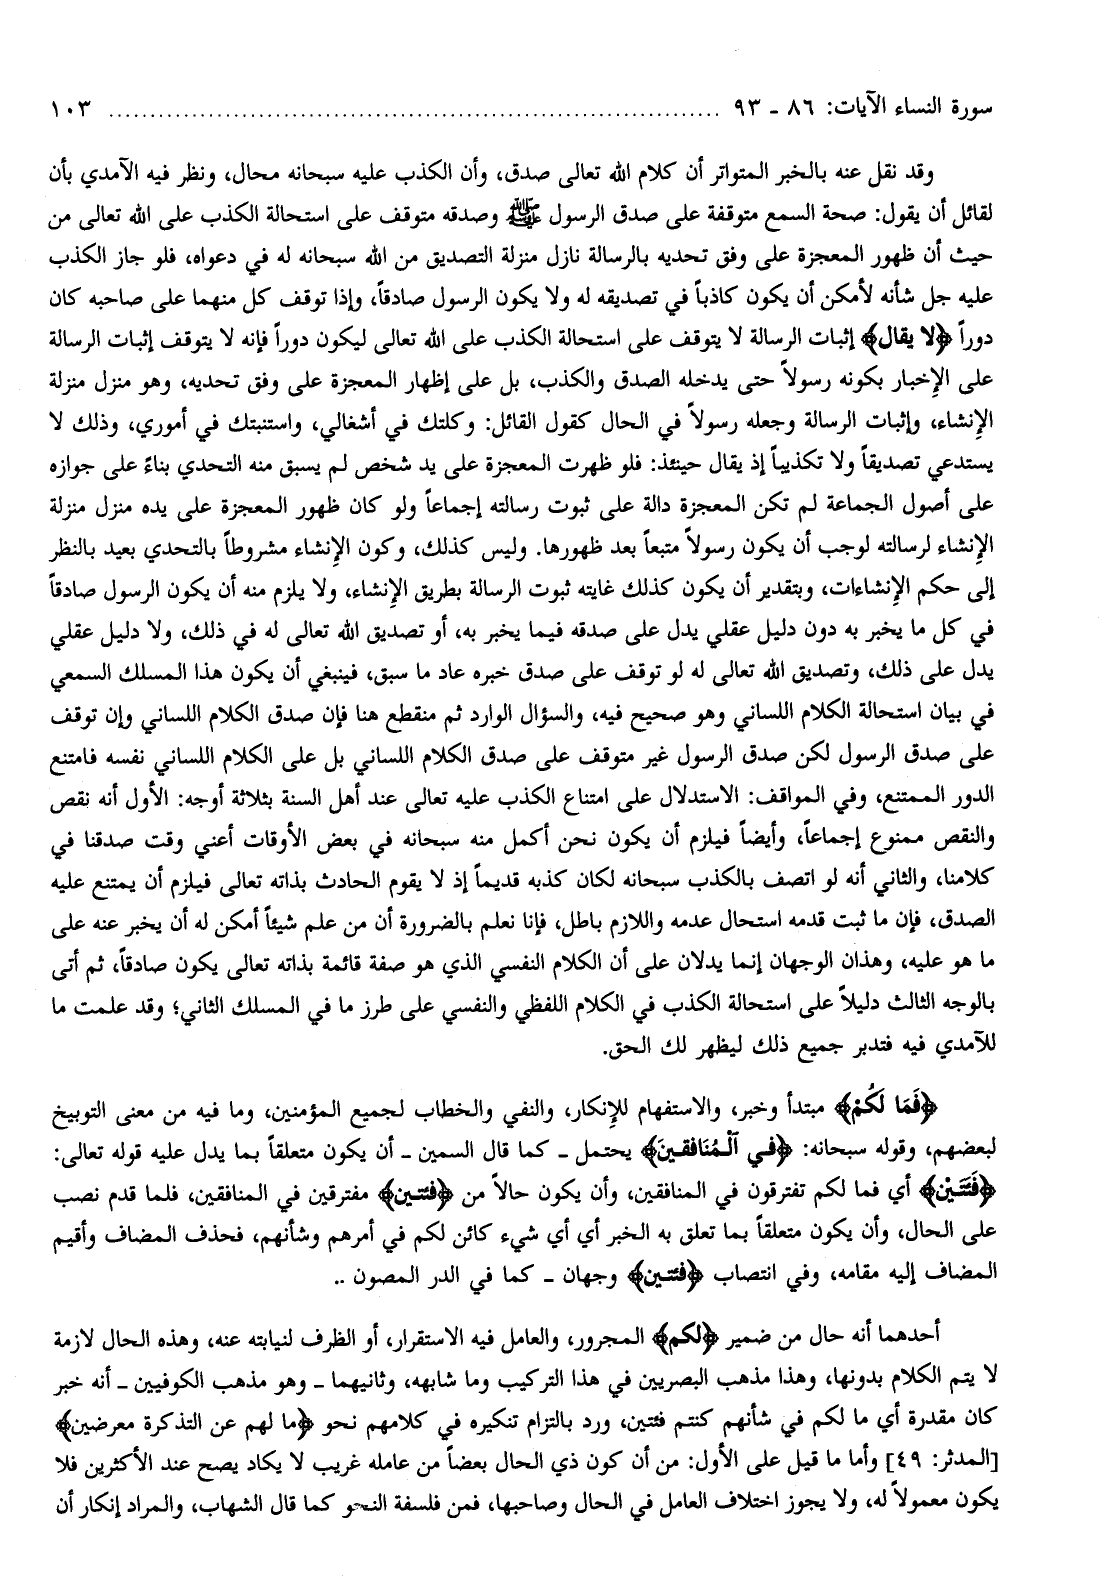 سورة النساء الآيات: ٨٦ ـ ٩٣ ........................................................................ ١٠٣
وقد نقل عنه بالخبر المتواتر أن كلام الله تعالى صدق، وأن الكذب عليه سبحانه محال، ونظر فيه الآمدي بأن
لقائل أن يقول: صحة السمع متوقفة على صدق الرسول ﷺ وصدقه متوقف على استحالة الكذب على الله تعالى من
حيث أن ظهور المعجزة على وفق تحديه بالرسالة نازل منزلة التصديق من الله سبحانه له في دعواه، فلو جاز الكذب
عليه جل شأنه لأمكن أن يكون كاذباً في تصديقه له ولا يكون الرسول صادقاً، وإذا توقف كل منهما على صاحبه كان
دوراً ﴿لا يقال﴾ إثبات الرسالة لا يتوقف على استحالة الكذب على الله تعالى ليكون دوراً فإنه لا يتوقف إثبات الرسالة
على الإخبار بكونه رسولاً حتى يدخله الصدق والكذب، بل على إظهار المعجزة على وفق تحديه، وهو منزل منزلة
الإنشاء، وإثبات الرسالة وجعله رسولاً في الحال كقول القائل: وكلتك في أشغالي، واستنبتك في أموري، وذلك لا
يستدعي تصديقاً ولا تكذيباً إذ يقال حينئذ: فلو ظهرت المعجزة على يد شخص لم يسبق منه التحدي بناءً على جوازه
على أصول الجماعة لم تكن المعجزة دالة على ثبوت رسالته إجماعاً ولو كان ظهور المعجزة على يده منزل منزلة
الإنشاء لرسالته لوجب أن يكون رسولاً متبعاً بعد ظهورها. وليس كذلك، وكون الإنشاء مشروطاً بالتحدي بعيد بالنظر
إلى حكم الإنشاءات، وبتقدير أن يكون كذلك غايته ثبوت الرسالة بطريق الإنشاء، ولا يلزم منه أن يكون الرسول صادقاً
في كل ما يخبر به دون دليل عقلي يدل على صدقه فيما يخبر به، أو تصديق الله تعالى له في ذلك، ولا دليل عقلي
يدل على ذلك، وتصديق الله تعالى له لو توقف على صدق خبره عاد ما سبق، فينبغي أن يكون هذا المسلك السمعي
في بيان استحالة الكلام اللساني وهو صحيح فيه، والسؤال الوارد ثم منقطع هنا فإن صدق الكلام اللساني وإن توقف
على صدق الرسول لكن صدق الرسول غير متوقف على صدق الكلام اللساني بل على الكلام اللساني نفسه فامتنع
الدور الممتنع، وفي المواقف: الاستدلال على امتناع الكذب عليه تعالى عند أهل السنة بثلاثة أوجه: الأول أنه نقص
والنقص ممنوع إجماعاً، وأيضاً فيلزم أن يكون نحن أكمل منه سبحانه في بعض الأوقات أعني وقت صدقنا في
كلامنا، والثاني أنه لو اتصف بالكذب سبحانه لكان كذبه قديماً إذ لا يقوم الحادث بذاته تعالى فيلزم أن يمتنع عليه
الصدق، فإن ما ثبت قدمه استحال عدمه واللازم باطل، فإنا نعلم بالضرورة أن من علم شيئاً أمكن له أن يخبر عنه على
ما هو عليه، وهذان الوجهان إنما يدلان على أن الكلام النفسي الذي هو صفة قائمة بذاته تعالى يكون صادقاً، ثم أتى
بالوجه الثالث دليلاً على استحالة الكذب في الكلام اللفظي والنفسي على طرز ما في المسلك الثاني؛ وقد علمت ما
للآمدي فيه فتدبر جميع ذلك ليظهر لك الحق.
﴿فَمَا لَكُمْ﴾ مبتدأ وخبر، والاستفهام للإنكار، والنفي والخطاب لجميع المؤمنين، وما فيه من معنى التوبيخ
لبعضهم، وقوله سبحانه: ﴿في الْمُنَافقينَ﴾ يحتمل ـ كما قال السمين ـ أن يكون متعلقاً بما يدل عليه قوله تعالى:
﴿فَئَتَيْن﴾ أي فما لكم تفترقون في المنافقين، وأن يكون حالاً من ﴿فئتين﴾ مفترقين في المنافقين، فلما قدم نصب
على الحال، وأن يكون متعلقاً بما تعلق به الخبر أي أي شيء كائن لكم في أمرهم وشأنهم، فحذف المضاف وأقيم
المضاف إليه مقامه، وفي انتصاب ﴿فئتين﴾ وجهان ـ كما في الدر المصون ..
أحدهما أنه حال من ضمير ﴿لكم﴾ المجرور، والعامل فيه الاستقرار، أو الظرف لنيابته عنه، وهذه الحال لازمة
لا يتم الكلام بدونها، وهذا مذهب البصريين في هذا التركيب وما شابهه، وثانيهما ـ وهو مذهب الكوفيين ـ أنه خبر
كان مقدرة أي ما لكم في شأنهم كنتم فئتين، ورد بالتزام تنكيره في كلامهم نحو ﴿ما لهم عن التذكرة معرضين﴾
[المدثر: ٤٩] وأما ما قيل على الأول: من أن كون ذي الحال بعضاً من عامله غريب لا يكاد يصح عند الأكثرين فلا
يكون معمولاً له، ولا يجوز اختلاف العامل في الحال وصاحبها، فمن فلسفة النحو كما قال الشهاب، والمراد إنكار أن